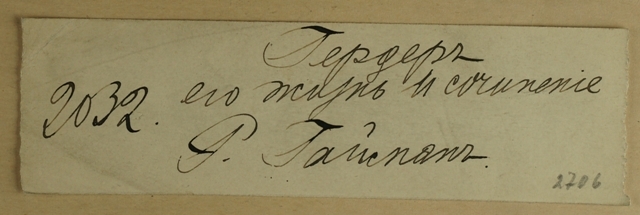 Гердеръ
2032. его жизнь и сочиненіе
Р. Гайманъ.
2706